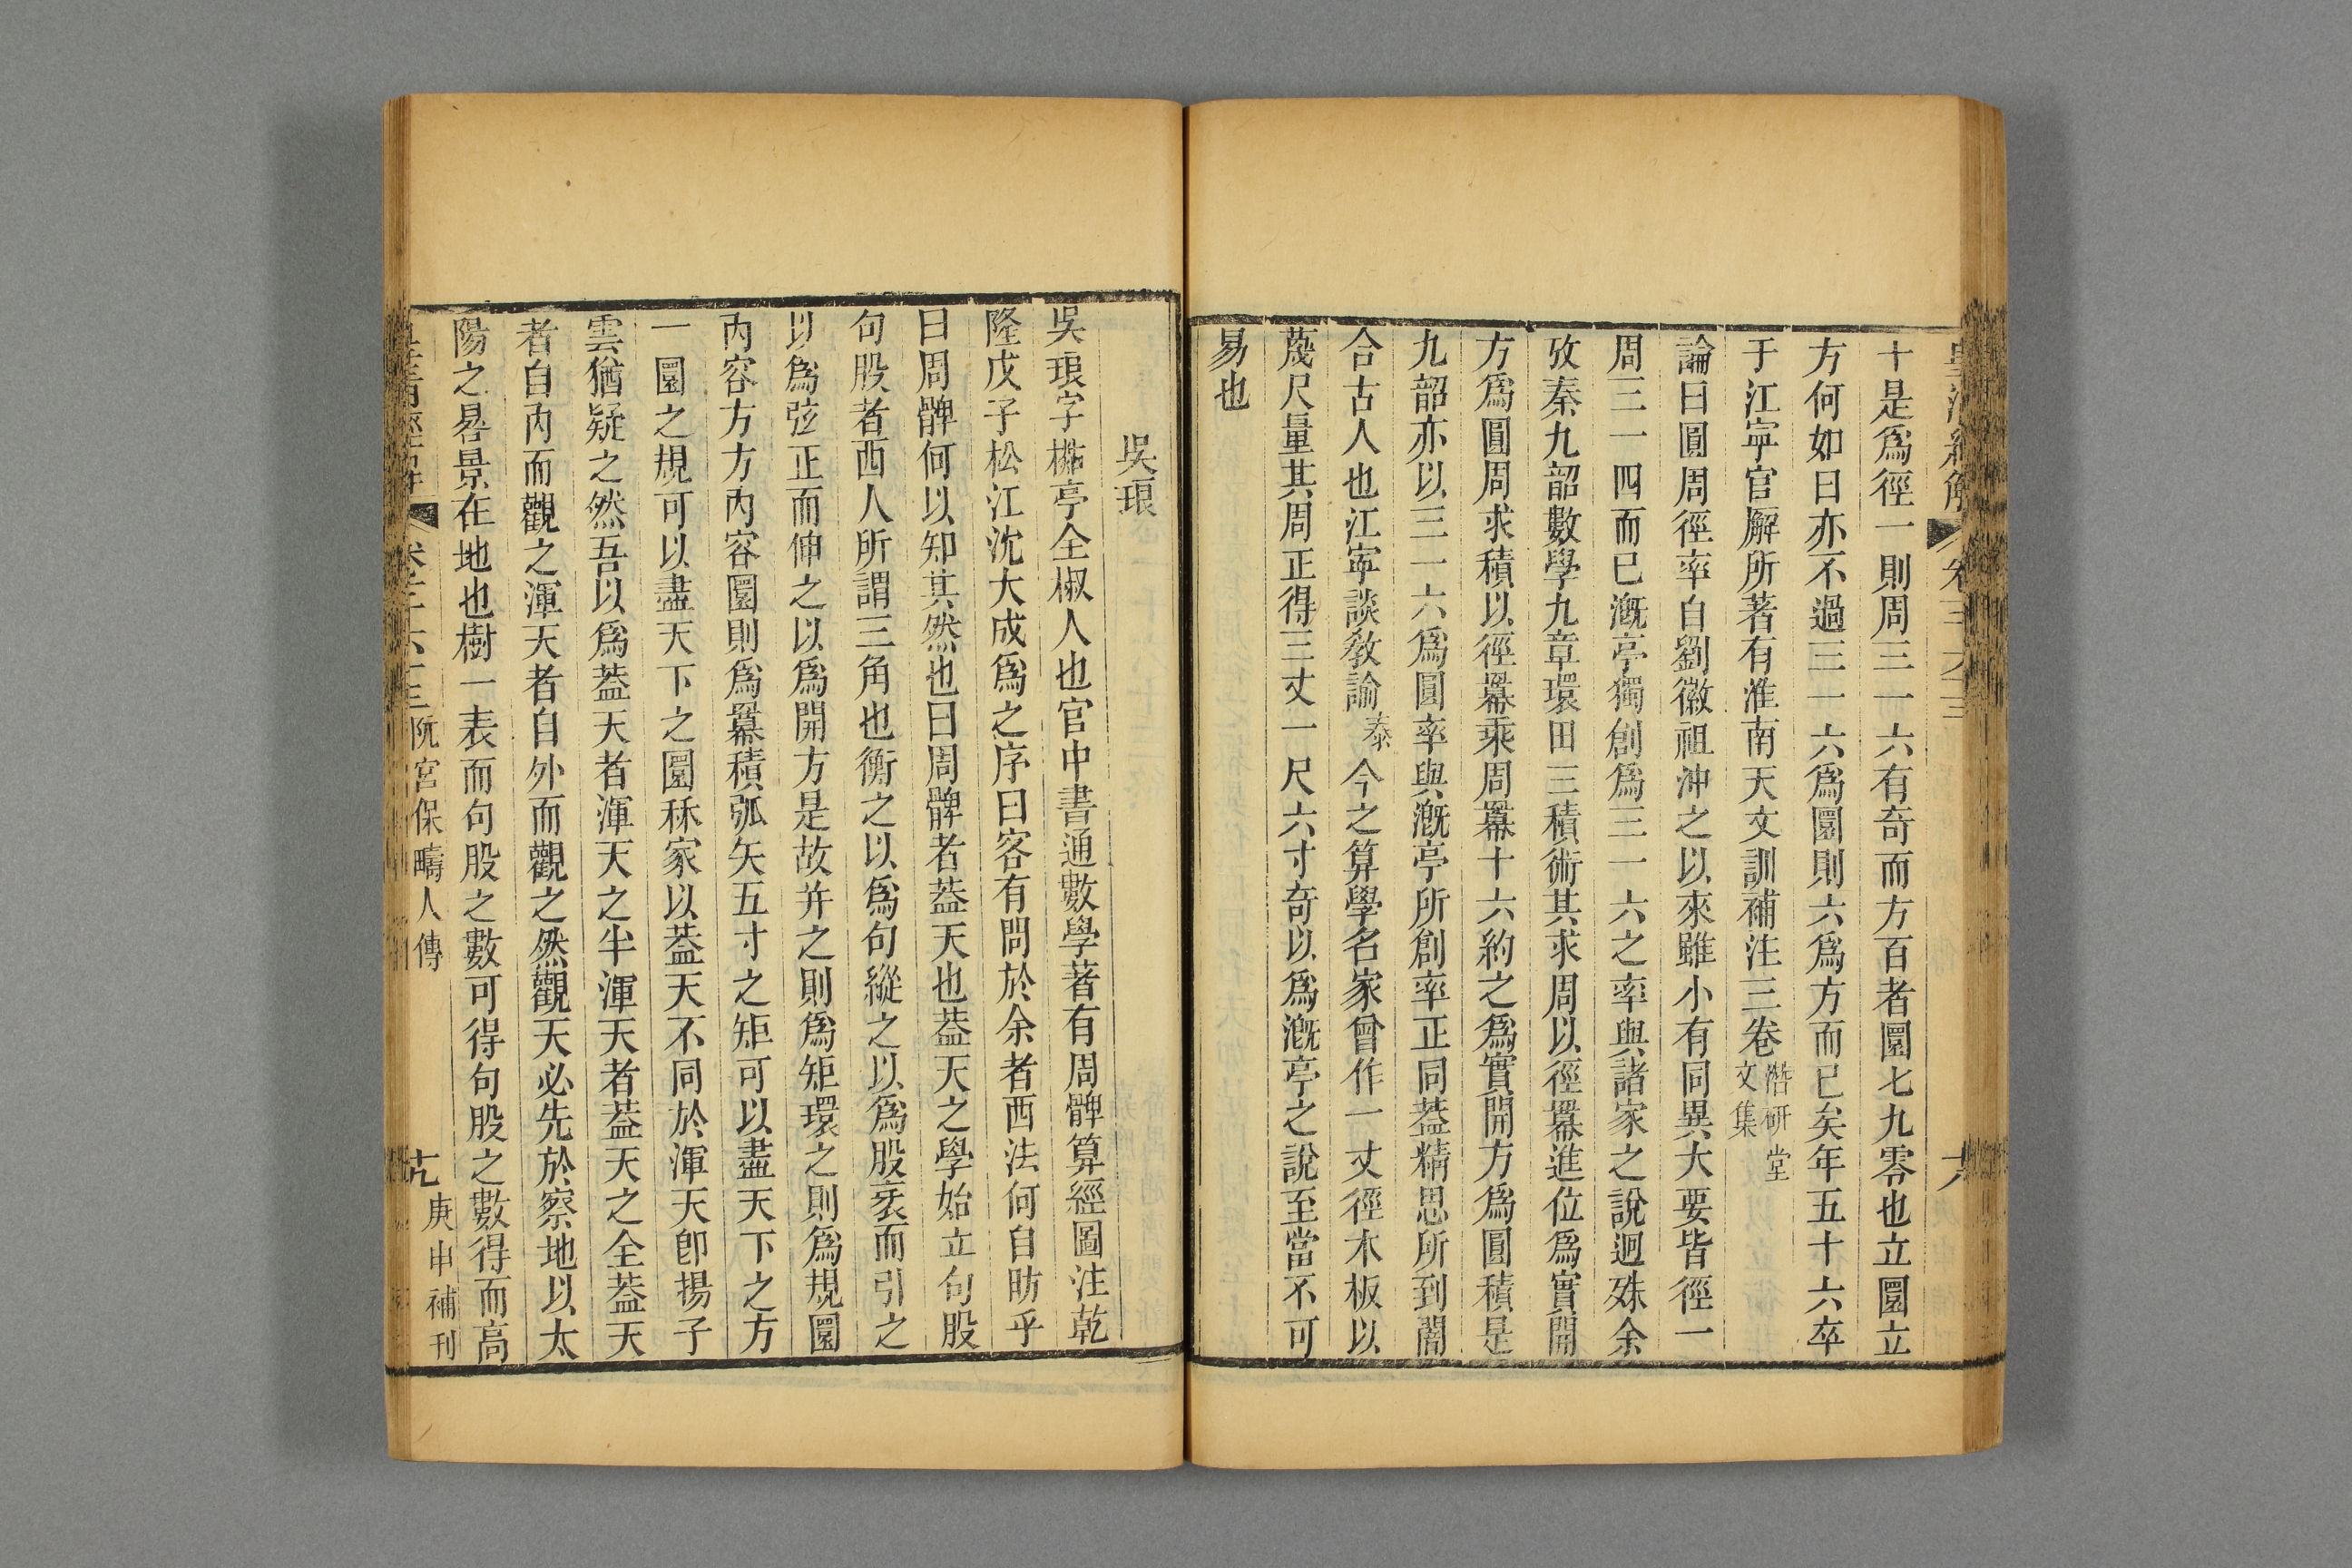 皇清經解 卷三 六三 六
十是爲徑一則周三一六有奇而方百者圜七九零也立圜立
方何如曰亦不過三一六爲圜則六爲方而已矣年五十六卒
于江寜官廨所著有淮南天文訓補注三卷潛研堂文集
論曰圓周徑率自劉徽祖沖之以來雖小有同異大要皆徑一
周三一四而已漑亭獨創爲三一六之率與諸家之說迥殊余
攷秦九韶數學九章環田三積術其求周以徑羃進位爲實開
方爲圓周求積以徑羃乘周羃十六約之爲實開方爲圓積是
九韶亦以三一六爲圓率與漑亭所創率正同葢精思所到闇
合古人也江寜談敎諭泰今之算學名家曾作一丈徑木板以
蔑尺量其周正得三丈一尺六寸奇以爲漑亭之說至當不可
易也
吳烺
吳烺字檆亭全椒人也官中書通數學著有周髀算經圖注乾
隆戊子松江沈大成爲之序曰客有問於余者西法何自昉乎
曰周髀何以知其然也曰周髀者葢天也葢天之學始立句股
句股者西人所謂三角也衡之以爲句縱之以爲股衺而引之
以爲弦正而伸之以爲開方是故并之則爲矩環之則爲規圜
內容方方內容圜則爲羃積弧矢五寸之矩可以盡天下之方
一圜之規可以盡天下之圜秝家以葢天不同於渾天卽揚子
雲猶疑之然吾以爲葢天者渾天之半渾天者葢天之全葢天
者自內而觀之渾天者自外而觀之然觀天必先於察地以太
陽之晷景在地也樹一表而句股之數可得句股之數得而高
皇淸經解 卷 六三 阮宮保疇人傳 庚申補刊